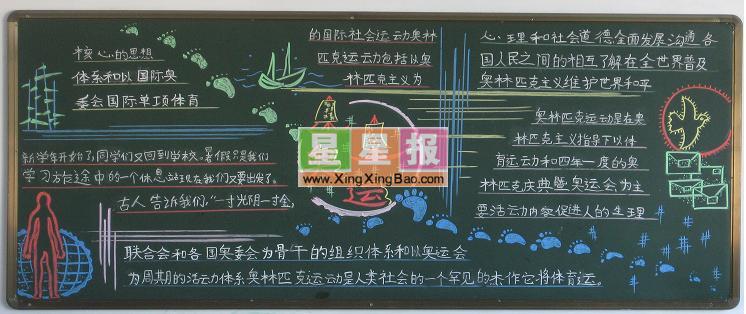 核心的思想
体系和以国际奥
委会国际单项体育
的国际社会运动奥林
匹克运动包括以奥
林匹克主义为
心理和社会道德全面发展沟通各
国人民之间的相互了解在全世界普及
奥林匹克主义维护世界和平
奥林匹克运动是在奥
林匹克主义指导下以体
育运动和四年一度的奥
林匹克庆典暨奥运会为主
要活动内容促进人的生理
新学年开始了,同学们又回到学校。暑假只是我们
学习旅途中的一个休息站现在我们又要出发了。
古人告诉我们,“一寸光阴一寸金,
星星报
www.XingXingBao.com
联合会和各国奥委会为骨干的组织体系和以奥运会
为周期的活动体系奥林匹克运动是人类社会的一个罕见的杰作它将体育运。